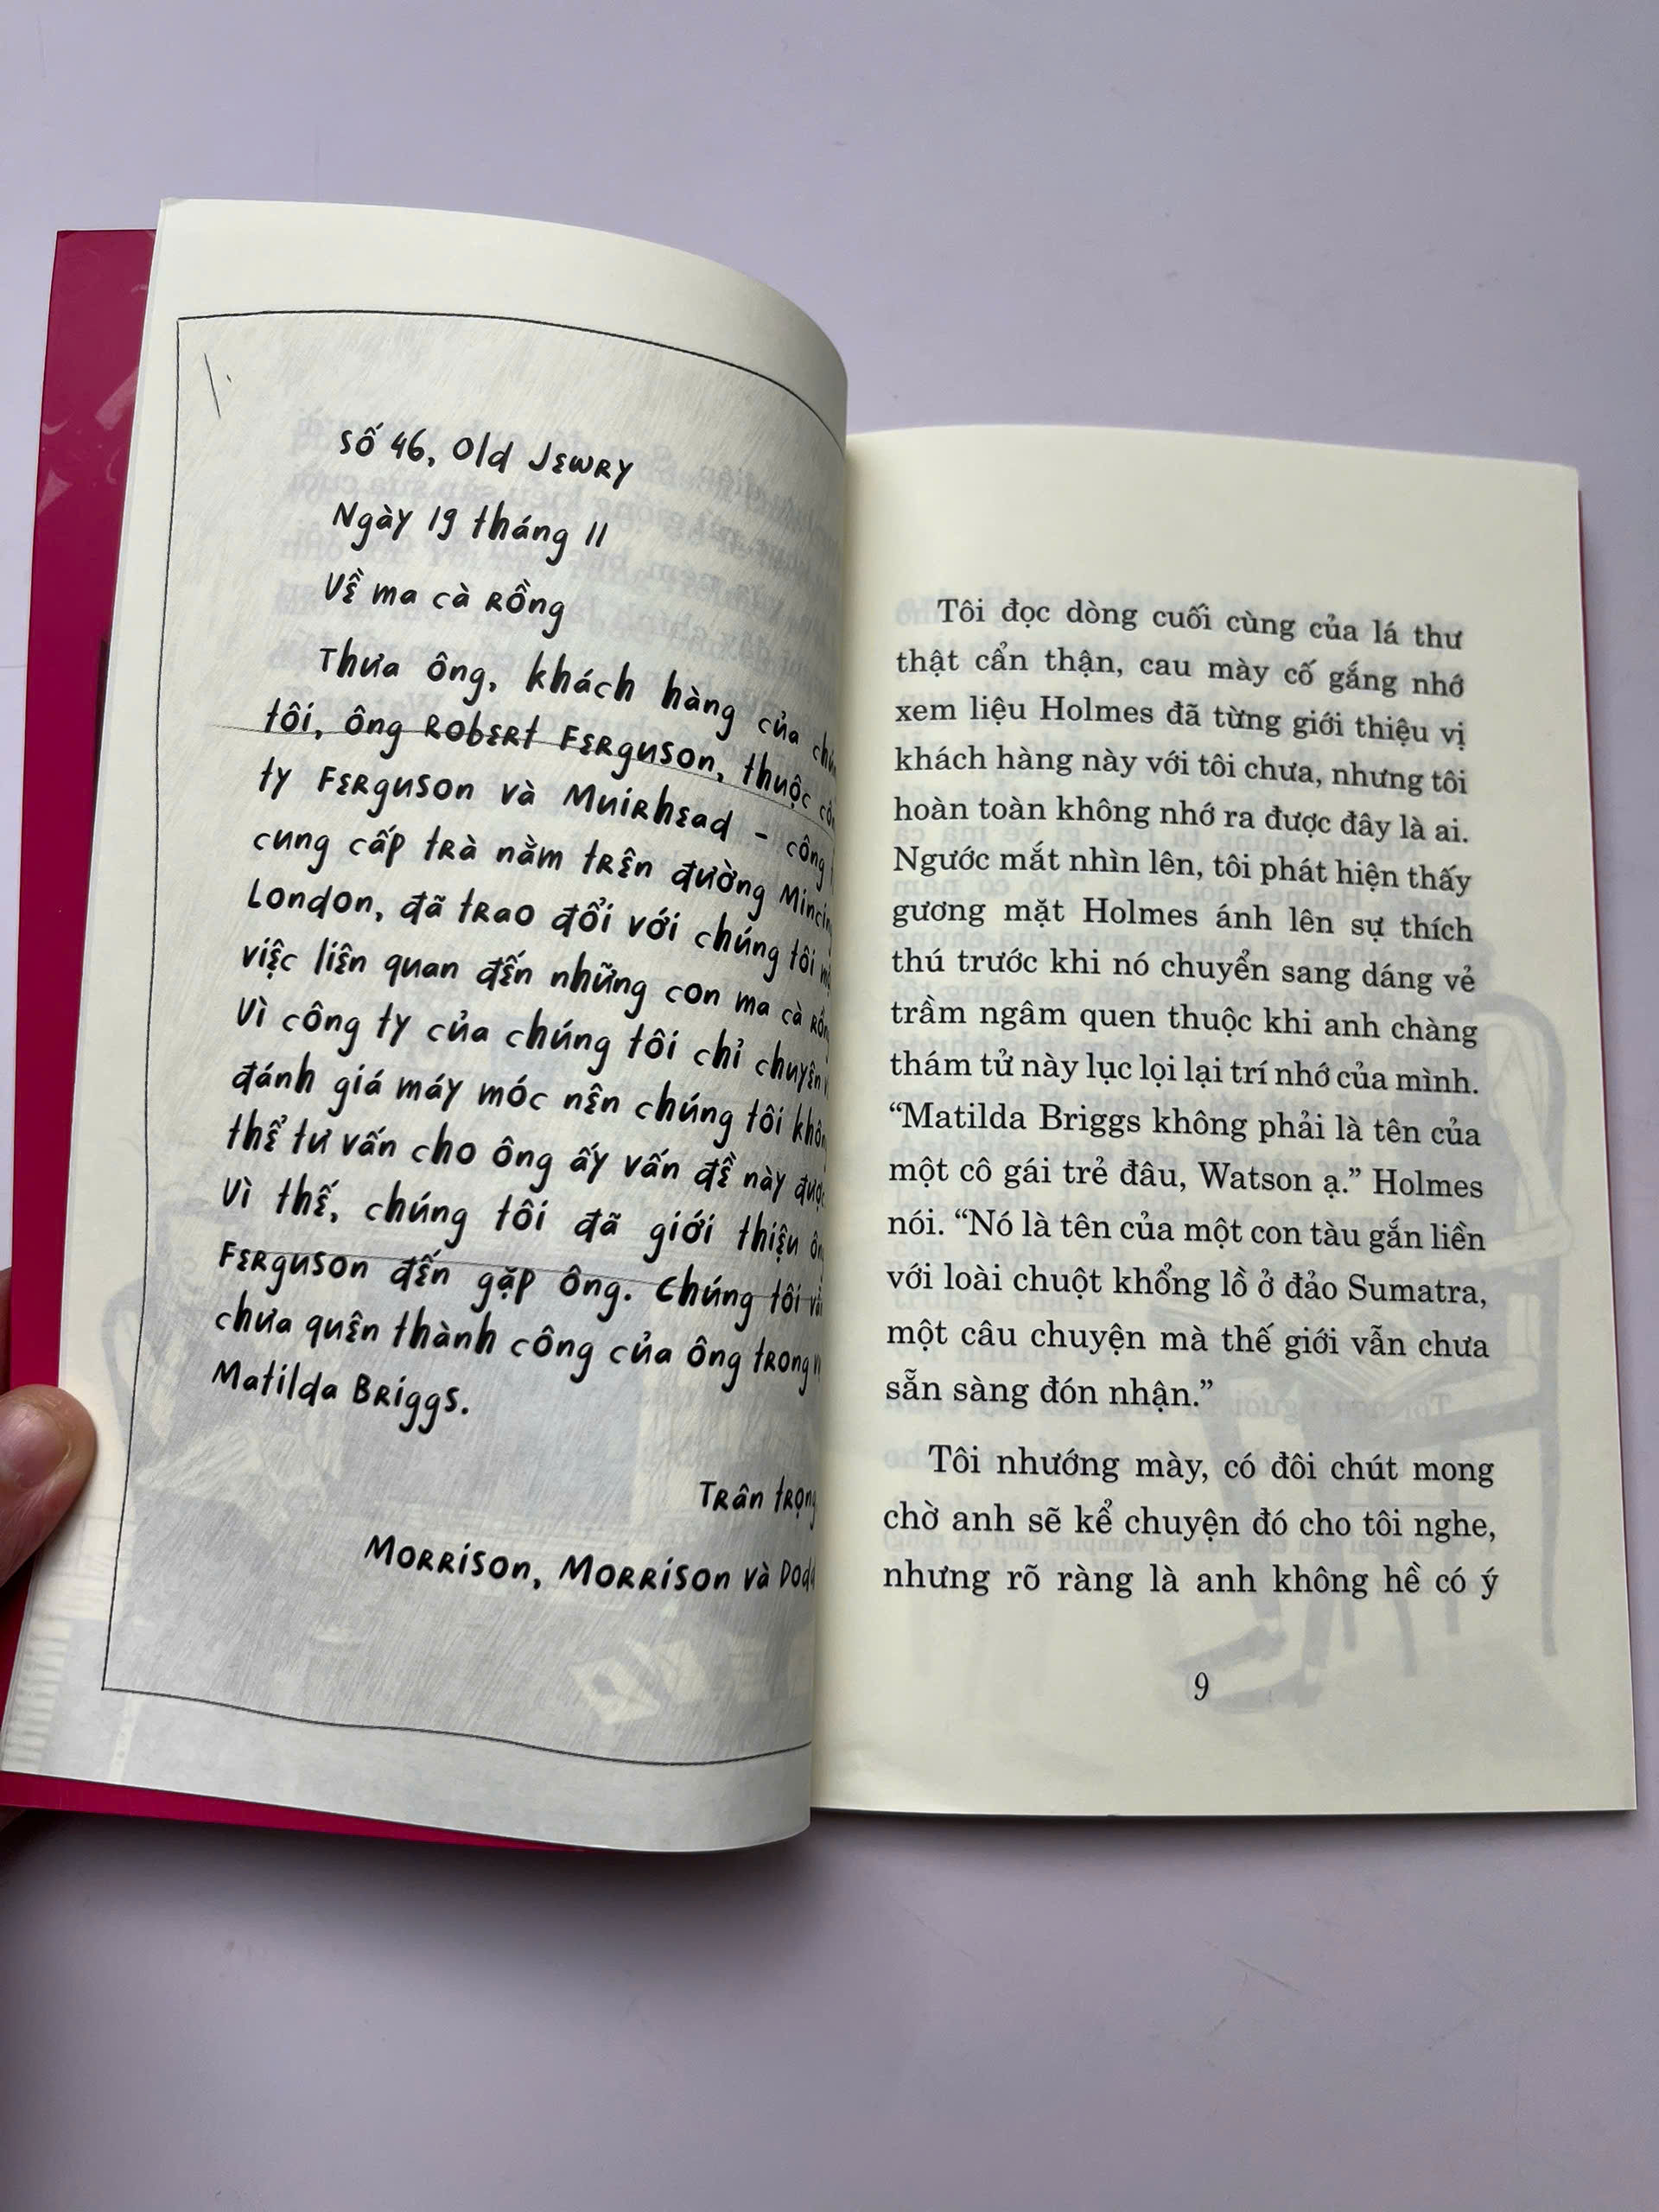 Số 46, Old Jewry
Ngày 19 tháng 11
Về ma cà rồng
Thưa ông, khách hàng của
tôi, ông Robert Ferguson, thuộc
ty Ferguson và Muirhead - công
cung cấp trà nằm trên đường
London, đã trao đổi với chúng tôi
việc liên quan đến những con ma cà
Vì công ty của chúng tôi chỉ chuyên
đánh giá máy móc nên chúng tôi
thể tư vấn cho ông ấy vấn đề này
Vì thế, chúng tôi đã giới thiệu
Ferguson đến gặp ông. Chúng tôi
chưa quên thành công của ông trong
Matilda Briggs.
Trân
Morrison, Morrison và
Tôi đọc dòng cuối cùng của lá thư
thật cẩn thận, cau mày cố gắng nhớ
xem liệu Holmes đã từng giới thiệu vị
khách hàng này với tôi chưa, nhưng tôi
hoàn toàn không nhớ ra được đây là ai.
Ngước mắt nhìn lên, tôi phát hiện thấy
gương mặt Holmes ánh lên sự thích
thú trước khi nó chuyển sang dáng vẻ
trầm ngâm quen thuộc khi anh chàng
thám tử này lục lọi lại trí nhớ của mình.
“Matilda Briggs không phải là tên của
một cô gái trẻ đâu, Watson ạ.” Holmes
nói. “Nó là tên của một con tàu gắn liền
với loài chuột khổng lồ ở đảo Sumatra,
một câu chuyện mà thế giới vẫn chưa
sẵn sàng đón nhận.”
Tôi nhướng mày, có đôi chút mong
chờ anh sẽ kể chuyện đó cho tôi nghe,
nhưng rõ ràng là anh không hề có ý
9